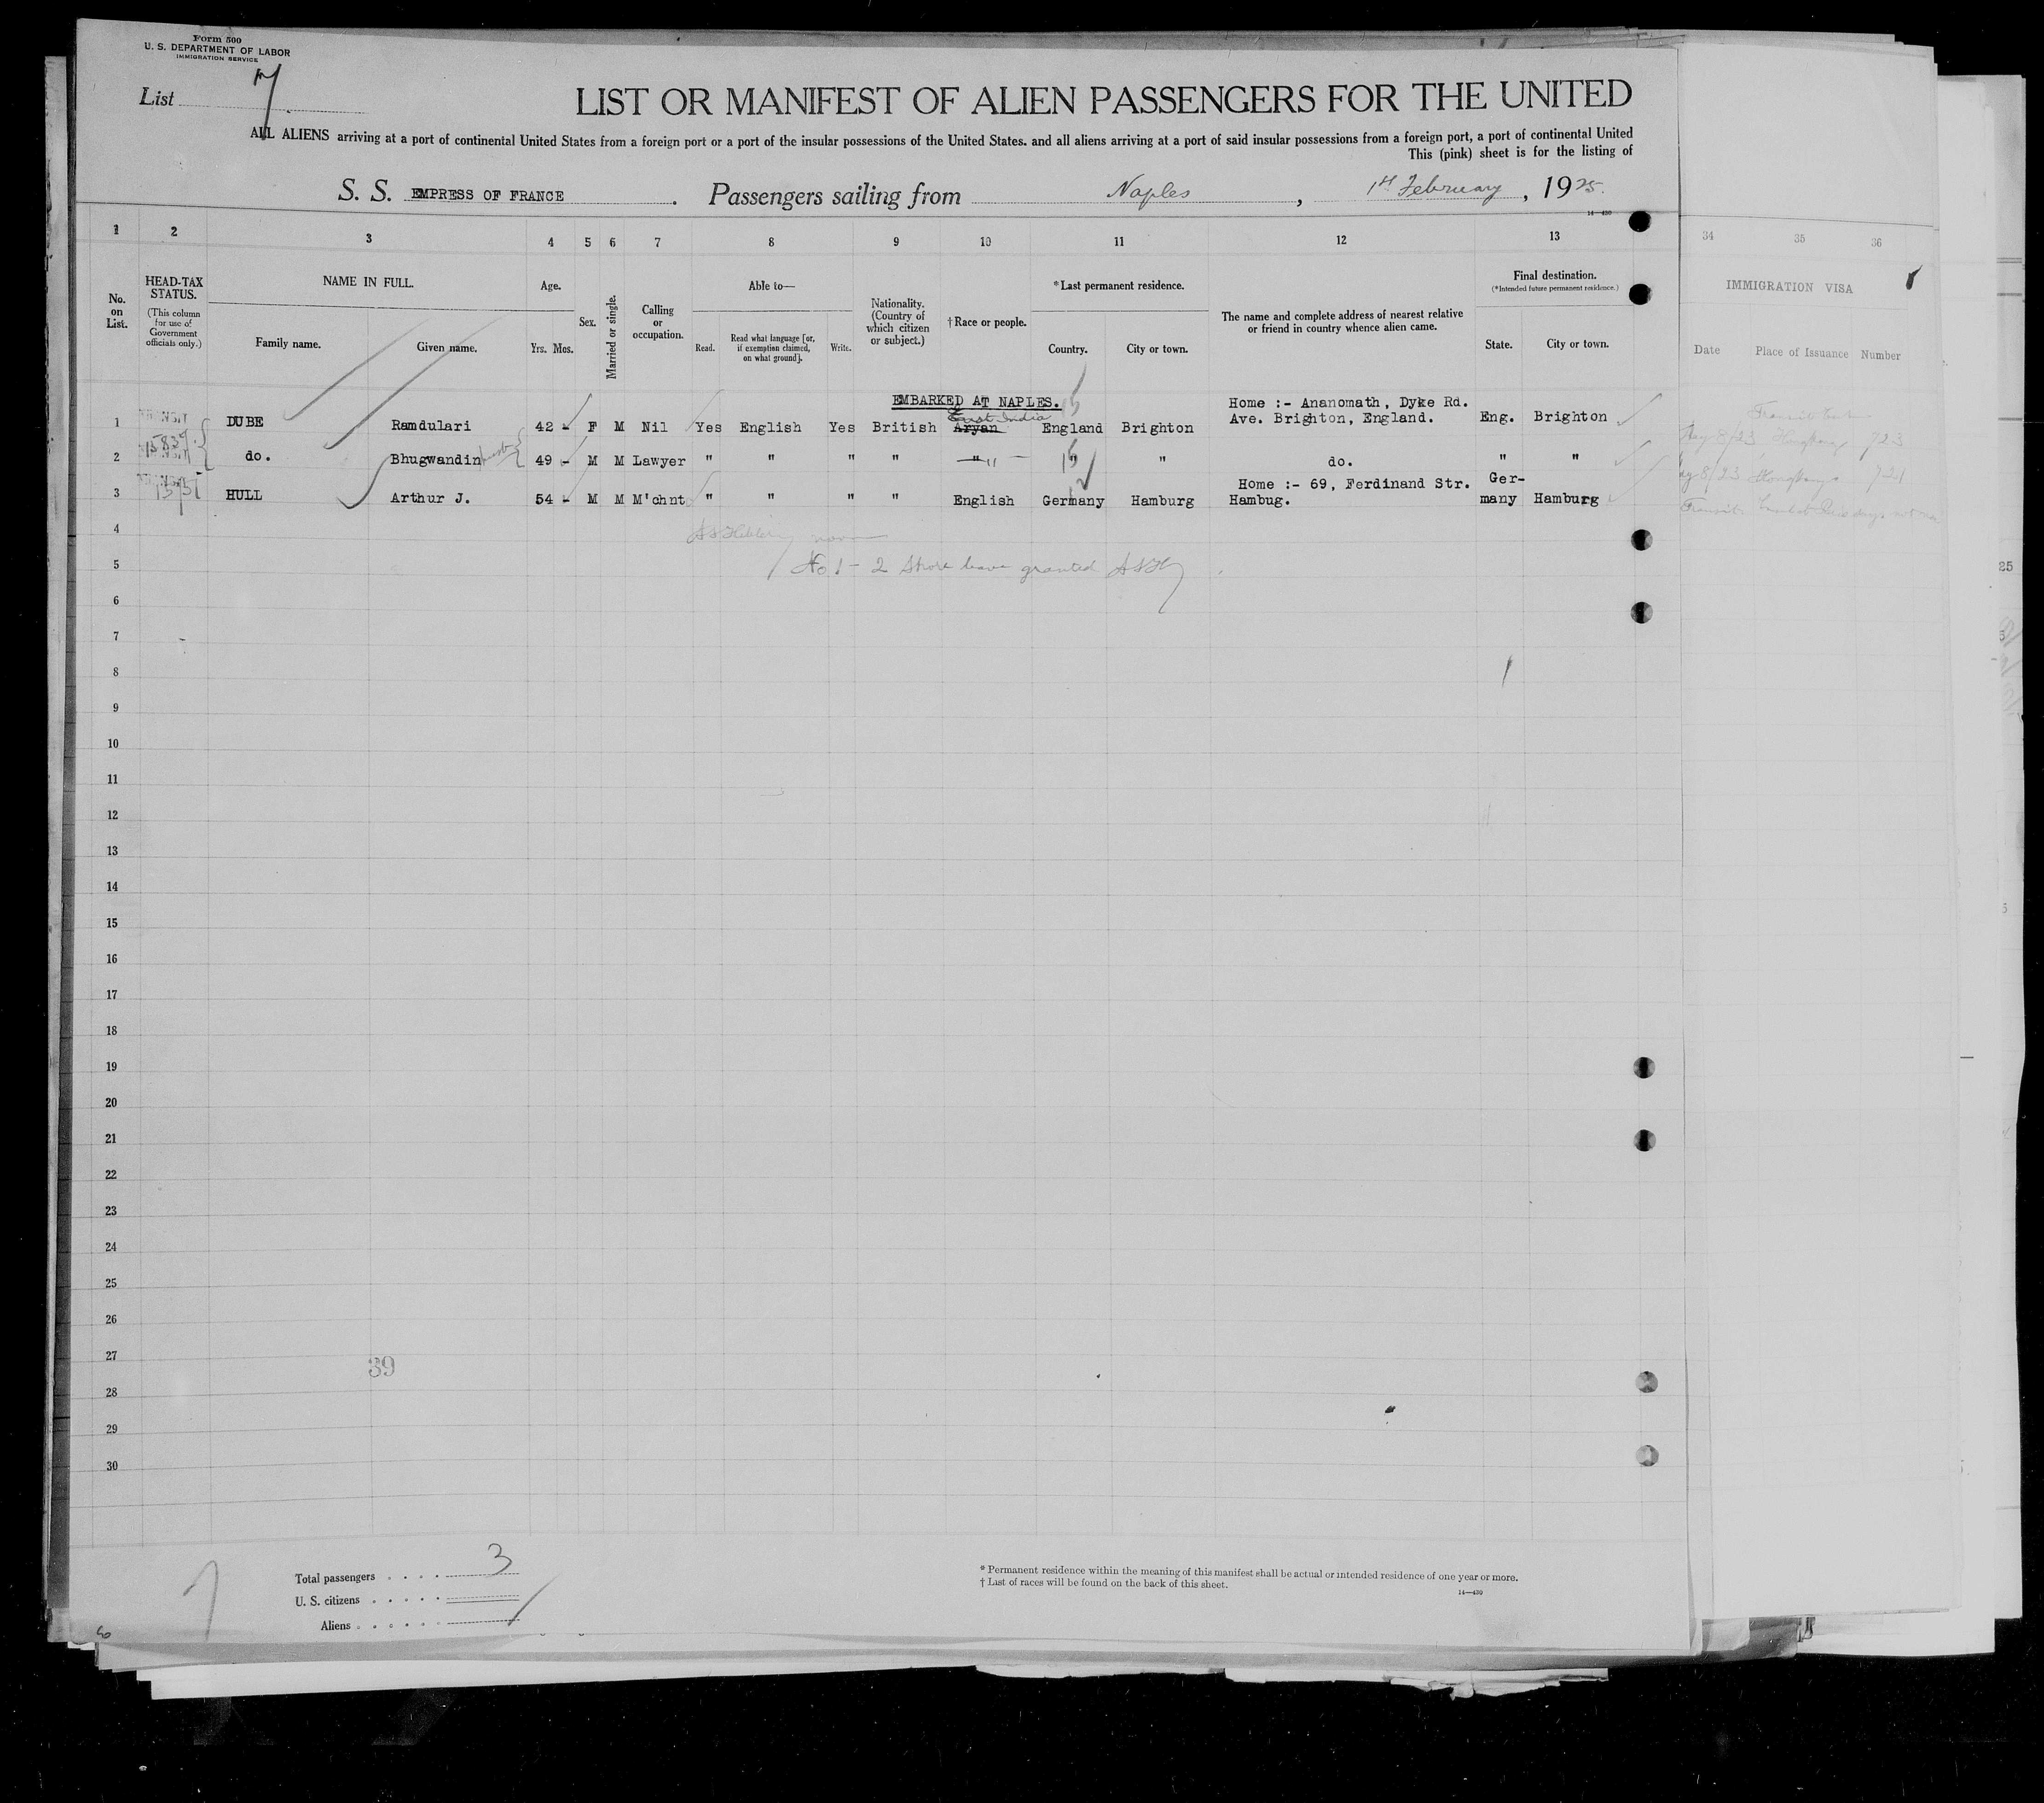 Form 500
U. S. DEPARTMENT OF LABOR
IMMIGRATION SERVICE
List 7
LIST OR MANIFEST OF ALIEN PASSENGERS FOR THE UNITED
ALL ALIENS arriving at a port of continental United States from a foreign port or a port of the insular possessions of the United States. and all aliens arriving at a port of said insular possessions from a foreign port, a port of continental United
This (pink) sheet is for the listing of
S. S. EMPRESS OF FRANCE. Passengers sailing from Naples, 1st February, 1925.
14—430
1 2 3 4 5 6 7 8 9 10 11 12 13 34 35 36
No. on List.
HEAD-TAX STATUS.
(This column for use of Government officials only.)
NAME IN FULL.
Family name. Given name.
Age.
Yrs. Mos.
Sex.
Married or single.
Calling or occupation.
Able to—
Read. Read what language [or, if exemption claimed, on what ground]. Write.
Nationality. (Country of which citizen or subject.)
† Race or people.
* Last permanent residence.
Country. City or town.
The name and complete address of nearest relative or friend in country whence alien came.
Final destination.
(* Intended future permanent residence.)
State. City or town.
IMMIGRATION VISA
Date Place of Issuance Number
EMBARKED AT NAPLES.
East India
1 DUBE Ramdulari 42 - F M Nil Yes English Yes British Aryan England Brighton Home :- Ananomath, Dyke Rd. Ave. Brighton, England. Eng. Brighton
2 do. Bhugwandin 49 - M M Lawyer " " " " " " " do. " " 723
3 HULL Arthur J. 54 - M M M'chnt " " " " English Germany Hamburg Home :- 69, Ferdinand Str. Hambug. Ger-many Hamburg 721
4
5 No 1 - 2 Shore leave granted
6
7
8
9
10
11
12
13
14
15
16
17
18
19
20
21
22
23
24
25
26
27
39
28
29
30
Total passengers 3
U. S. citizens
Aliens
* Permanent residence within the meaning of this manifest shall be actual or intended residence of one year or more.
† List of races will be found on the back of this sheet.
14—430